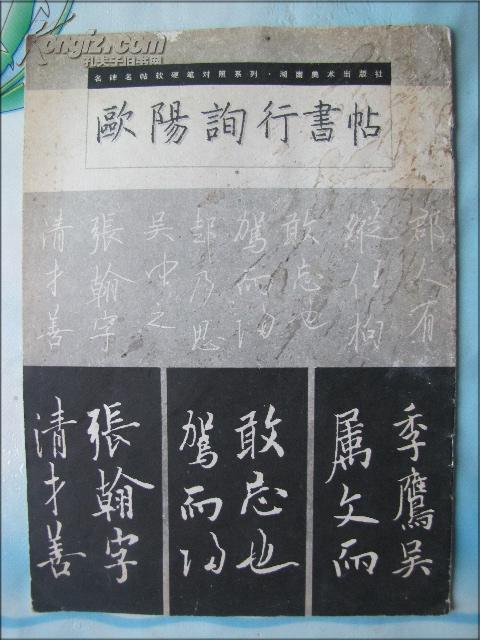 Kongfz.com
孔夫子旧书网
名碑名帖软硬笔对照系列·湖南美术出版社
歐陽詢行書帖
郡人有
縱任拘
敢忘也
駕而歸
却乃思
吴中之
張翰字
清才善
季鷹吴
属文而
敢忘也
駕而歸
張翰字
清才善